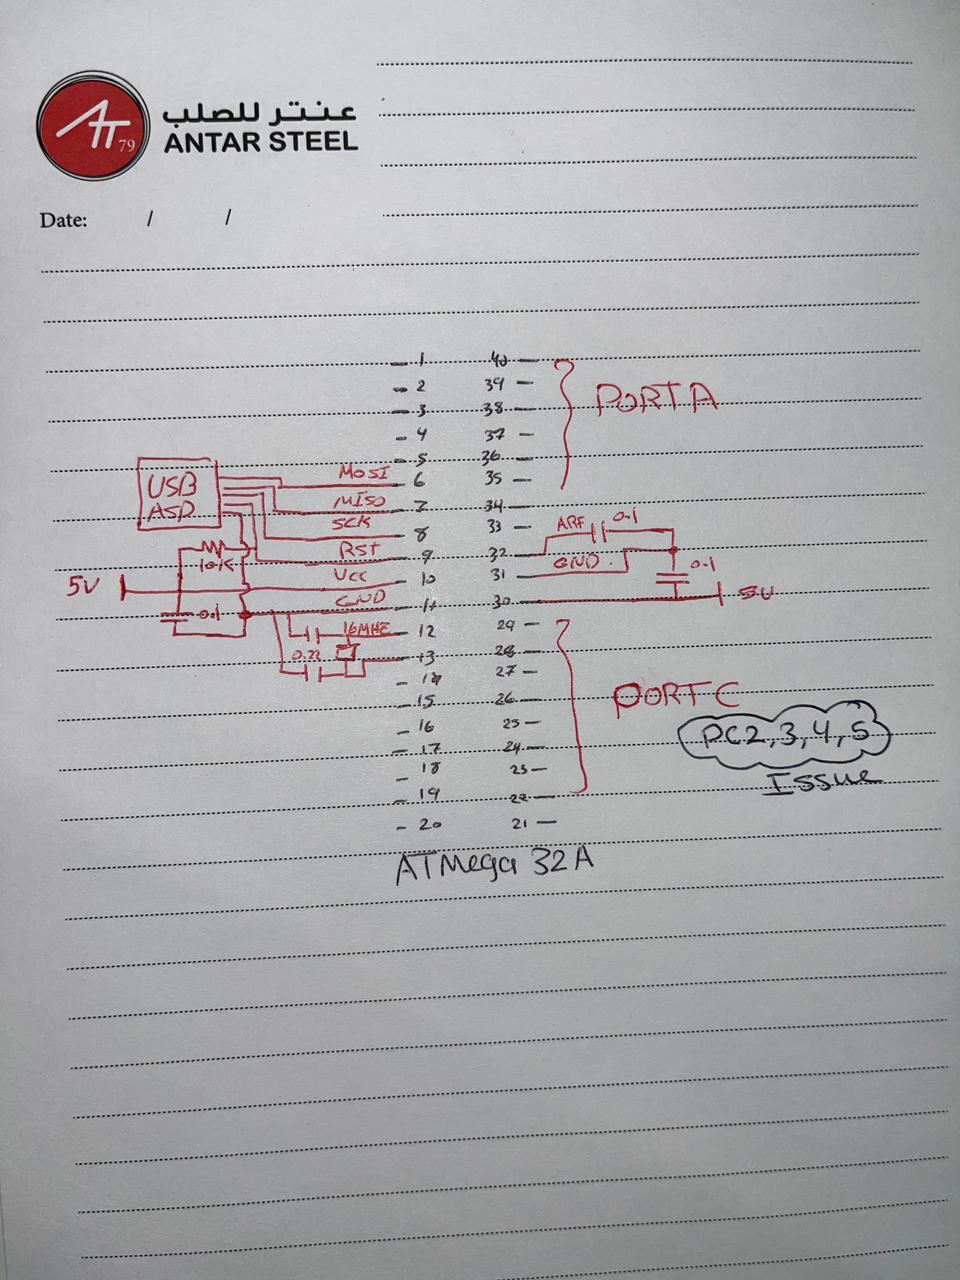 عنتر للصلب
ANTAR STEEL
AT 79
Date: / /
1 40
2 39
3 38
PORTA
4 37
5 36
USB
ASP
MOSI 6 35
MISO 7 34
SCK 8 33 ARF 0.1
RST 9 32
10K
5V VCC 10 31 GND 0.1
GND 11 30 5V
0.1
16MHZ 12 29
0.22 13 28
14 27
15 26
PORTC
16 25
PC2,3,4,5
17 24
Issue
18 23
19 22
20 21
ATMega 32A